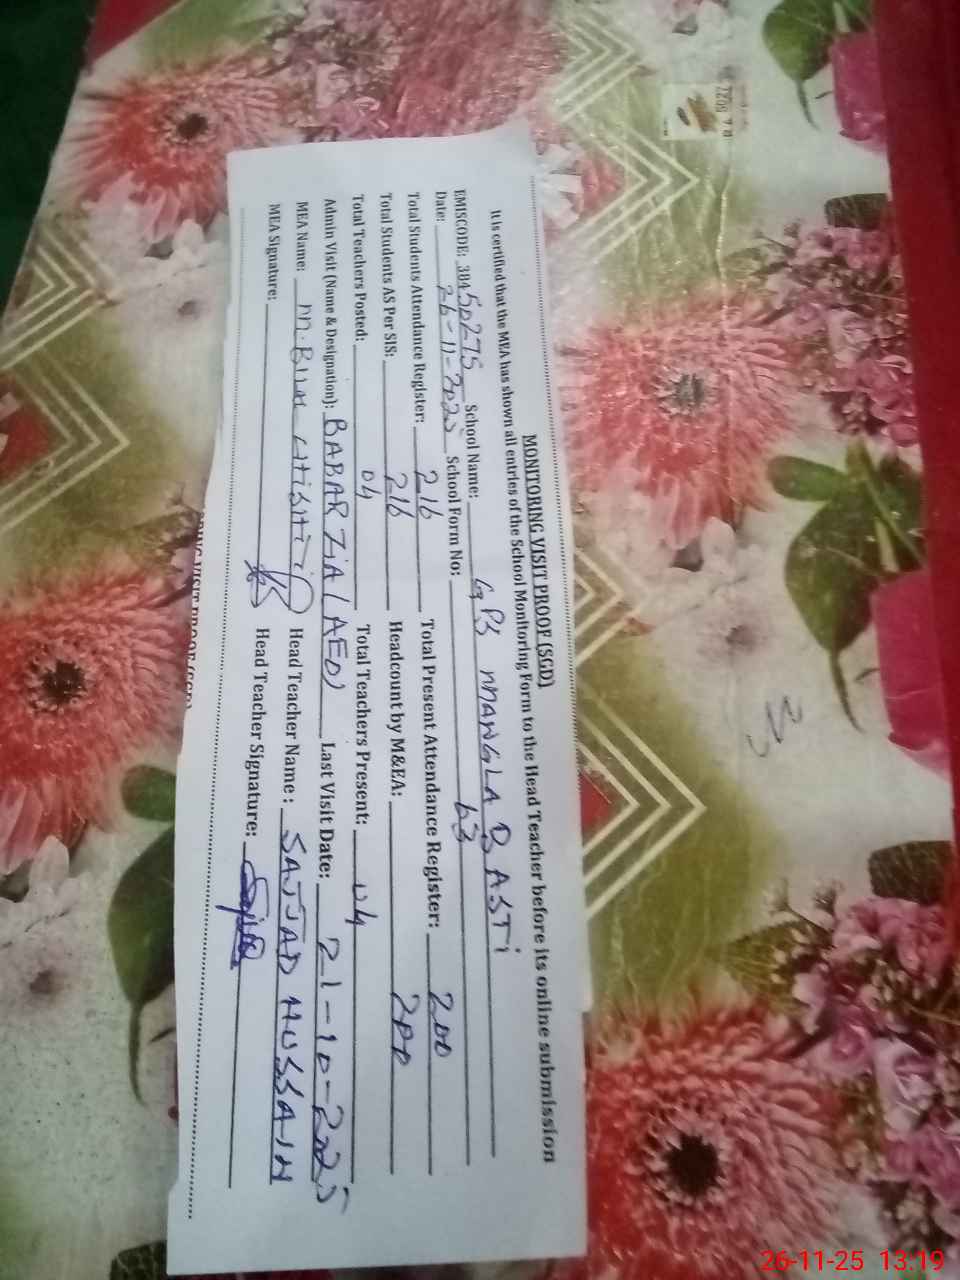 MONITORING VISIT PROOF (SGD)
It is certified that the MEA has shown all entries of the School Monitoring Form to the Head Teacher before its online submission
EMISCODE: 38450275 School Name: GPS MMANGLA BASTi
Date: 26-11-2025 School Form No: 63
Total Students Attendance Register: 216 Total Present Attendance Register: 200
Total Students AS Per SIS: 216 Headcount by M&EA: 200
Total Teachers Posted: 04 Total Teachers Present: 04
Admin Visit (Name & Designation): BABAR ZiA (AEO) Last Visit Date: 21-10-2025
MEA Name: M. BilAl Head Teacher Name: SAJJAD HUSSAIN
MEA Signature: Head Teacher Signature:
VISIT PROOF (SGD)
26-11-25 13:19